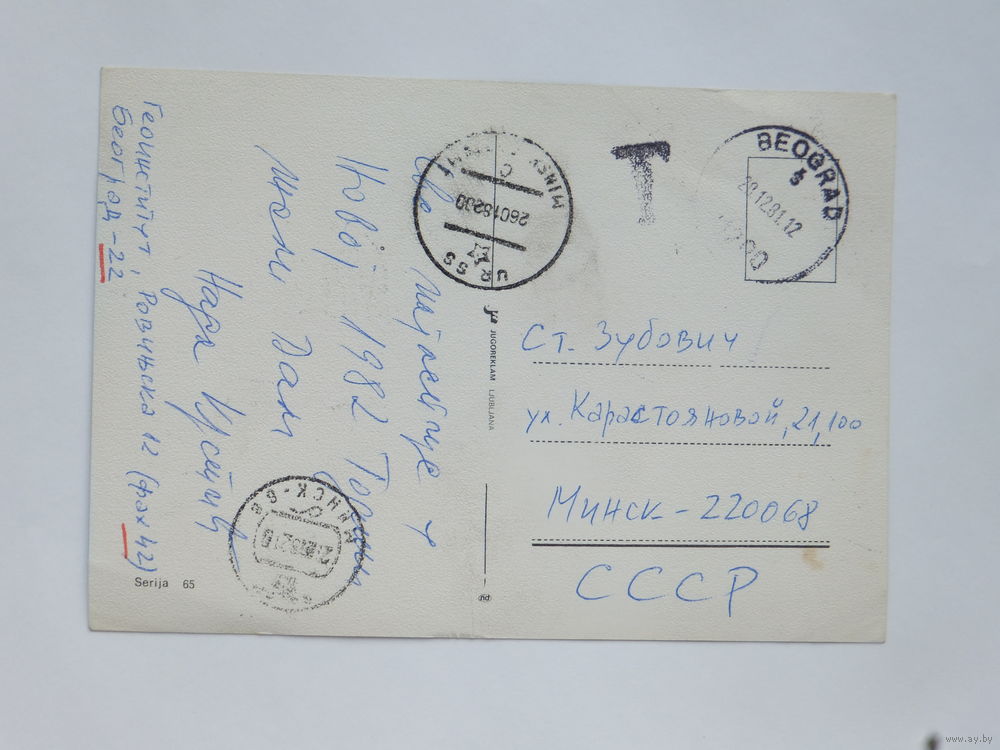 Све најлепше у
Новој 1982 Години
жели Вам
Нара
Геоинститут, Ровињска 12 (фах 42)
Београд-22
Serija 65
JUGOREKLAM LJUBLJANA
T
BEOGRAD
5
12.81.12
MINSK
C
URSS
МИНСК-6
Ст. Зубович
ул. Карастояновой, 21, 100
Минск-220068
СССР
www.ay.by